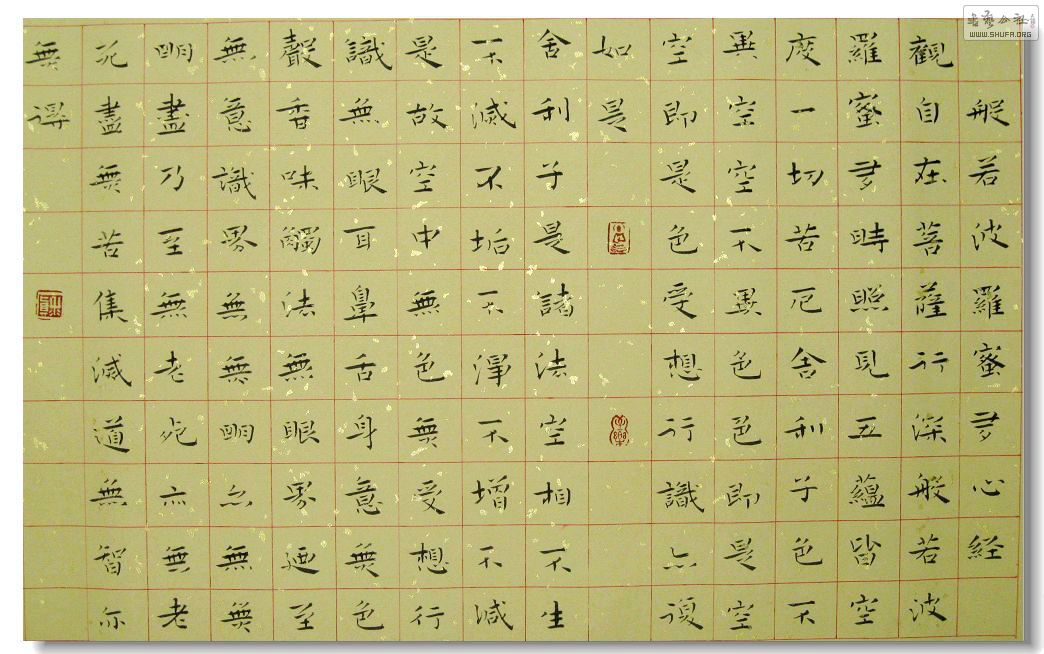 般若波羅蜜多心経
觀自在菩薩行深般若波
羅蜜多時照見五蘊皆空
度一切苦厄舍利子色不
異空空不異色色即是空
空即是色受想行識亦復
如是
舍利子是諸法空相不生
不滅不垢不淨不增不減
是故空中無色無受想行
識無眼耳鼻舌身意無色
聲香味觸法無眼界廼至
無意識界無無明亦無無
明盡乃至無老死亦無老
死盡無苦集滅道無智亦
無得
書藝公社
WWW.SHUFA.ORG